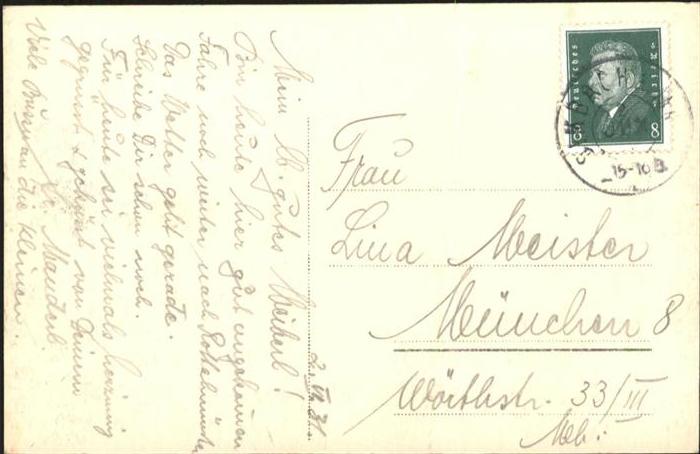 Mein lb. gutes Weiberl!
Bin heute hier gut angekommen
Fahre noch weiter nach
Das Wetter geht gerade.
Schreibe Dir schon noch.
Für heute sei vielmals innig
gegrüsst & geküsst von Deinem
lb. Manderl.
Viele Bussi an die Kleinen.
2. VI. 31
Deutsches Reich
8 8
15-16
Frau
Lina Meister
München 8
Wörthstr. 33/III